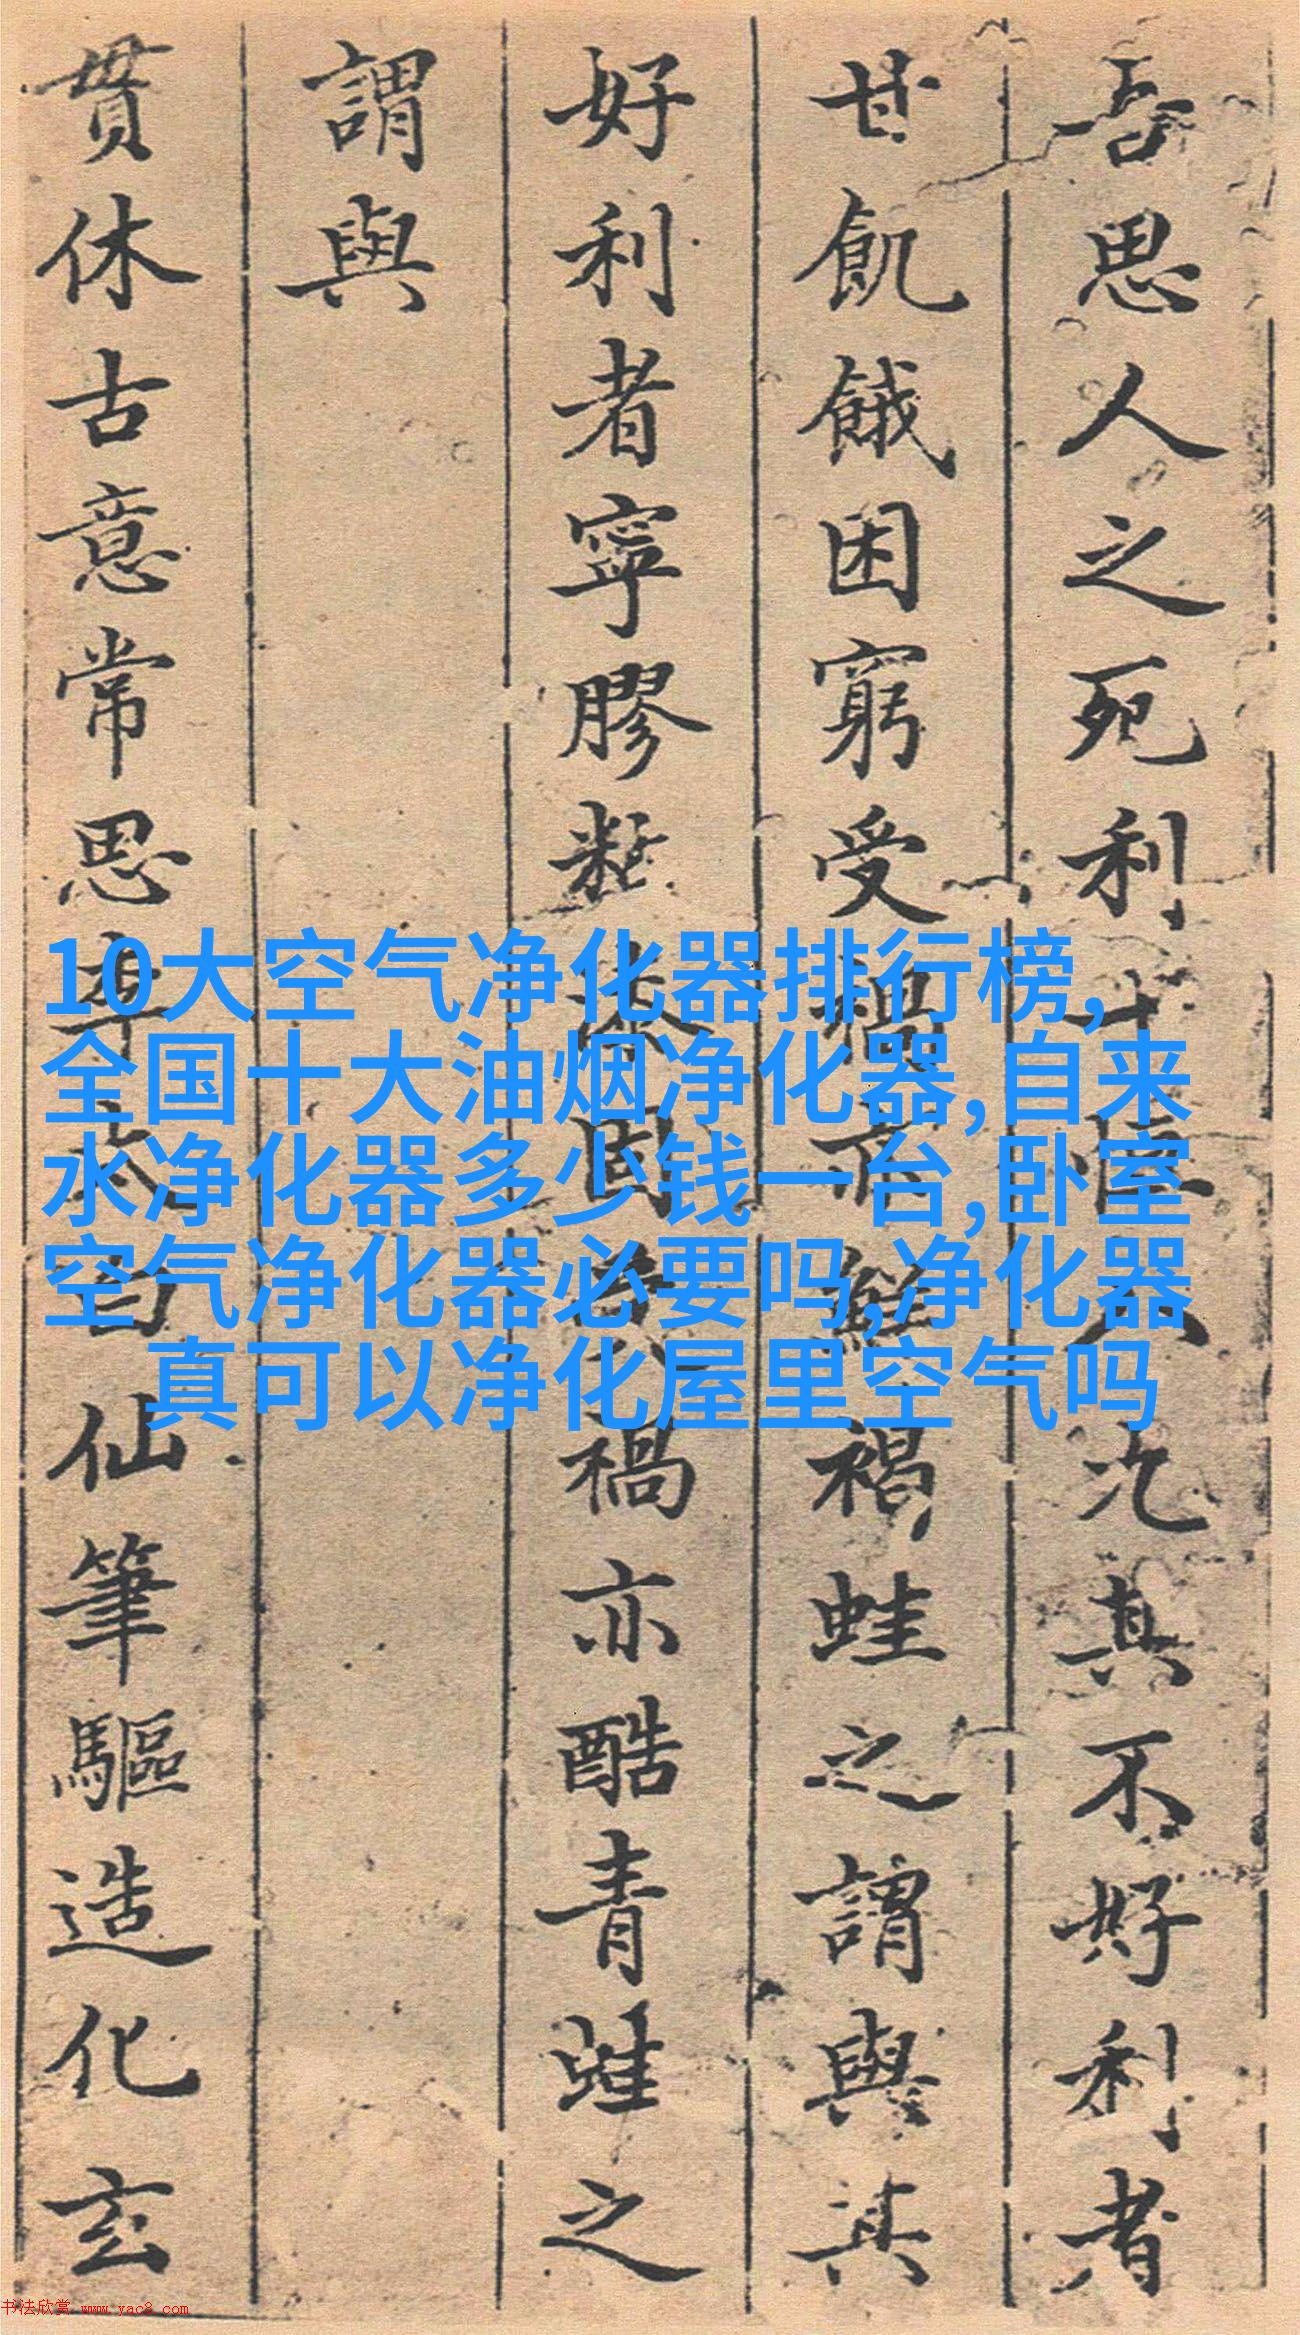 吾思人之死利十恆八九其不好利者
甘飢餓困窮受禍亦鮮褐蛙之謂與其
好利者寧膠漆固受禍亦酷青蛙之
謂與
貫休古意常思李太白仙筆驅造化玄
10大空气净化器排行榜,
全国十大油烟净化器,自来
水净化器多少钱一台,卧室
空气净化器必要吗,净化器
真可以净化屋里空气吗
书法欣赏 www.yac8.com